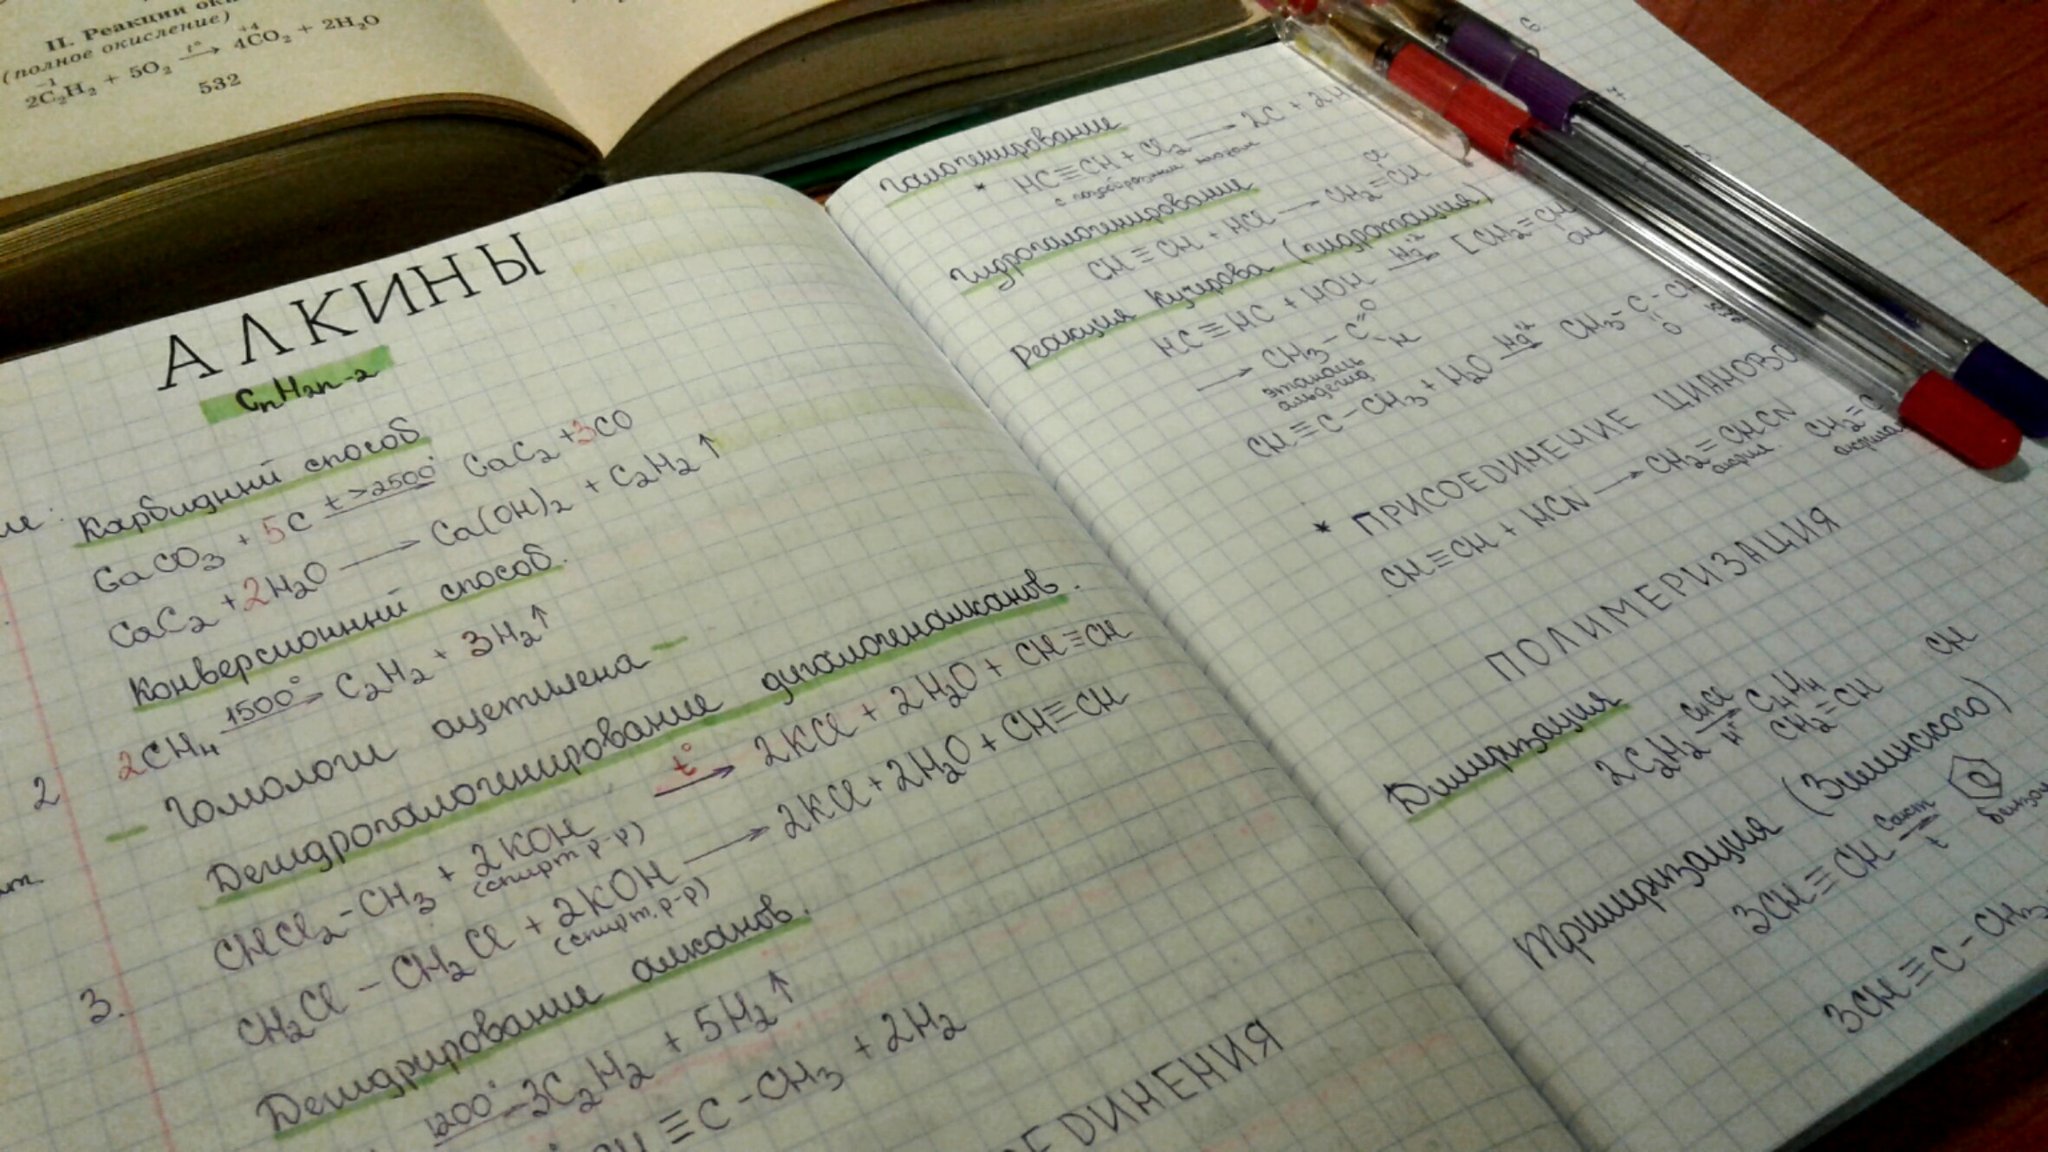 II. Реакции
(полное окисление)
2C₂H₂ + 5O₂ t° → 4CO₂ + 2H₂O
-1 +4
532
АЛКИНЫ
CnH2n-2
Карбидный способ
CaCO₃ + 5C t>2500° CaC₂ + 3CO
CaC₂ + 2H₂O → Ca(OH)₂ + C₂H₂↑
Конверсионный способ.
2CH₄ 1500° → C₂H₂ + 3H₂↑
2
– Гомологи ацетилена –
Дегидрогалогенирование дигалогеналканов.
CHCl₂-CH₃ + 2KOH t° → 2KCl + 2H₂O + CH≡CH
(спирт. р-р)
CH₂Cl – CH₂Cl + 2KOH → 2KCl + 2H₂O + CH≡CH
(спирт. р-р)
3.
Дегидрирование алканов.
1200° → 3C₂H₂ + 5H₂↑
≡C-CH₃ + 2H₂
ЕДИНЕНИЯ
Галогенирование
* HC≡CH + Cl₂ → 2C + 2H
Гидрогалогенирование
CH≡CH + HCl → CH₂=CH
Cl
Реакция Кучерова (гидротация)
HC≡HC + HOH Hg⁺² → [CH₂=CH
→ CH₃-C=O
-H
этаналь
альдегид
CH≡C-CH₃ + H₂O Hg⁺² → CH₃-C-CH
=O
* ПРИСОЕДИНЕНИЕ ЦИАНОВО
CH≡CH + HCN → CH₂=CHCN CH₂=C
ПОЛИМЕРИЗАЦИЯ
Димеризация
2C₂H₂ CuCl → C₄H₄
H⁺
CH₂=CH CH
Тримеризация (Зелинского)
3CH≡CH Cакт → t
3CH≡C-CH₃
6
7